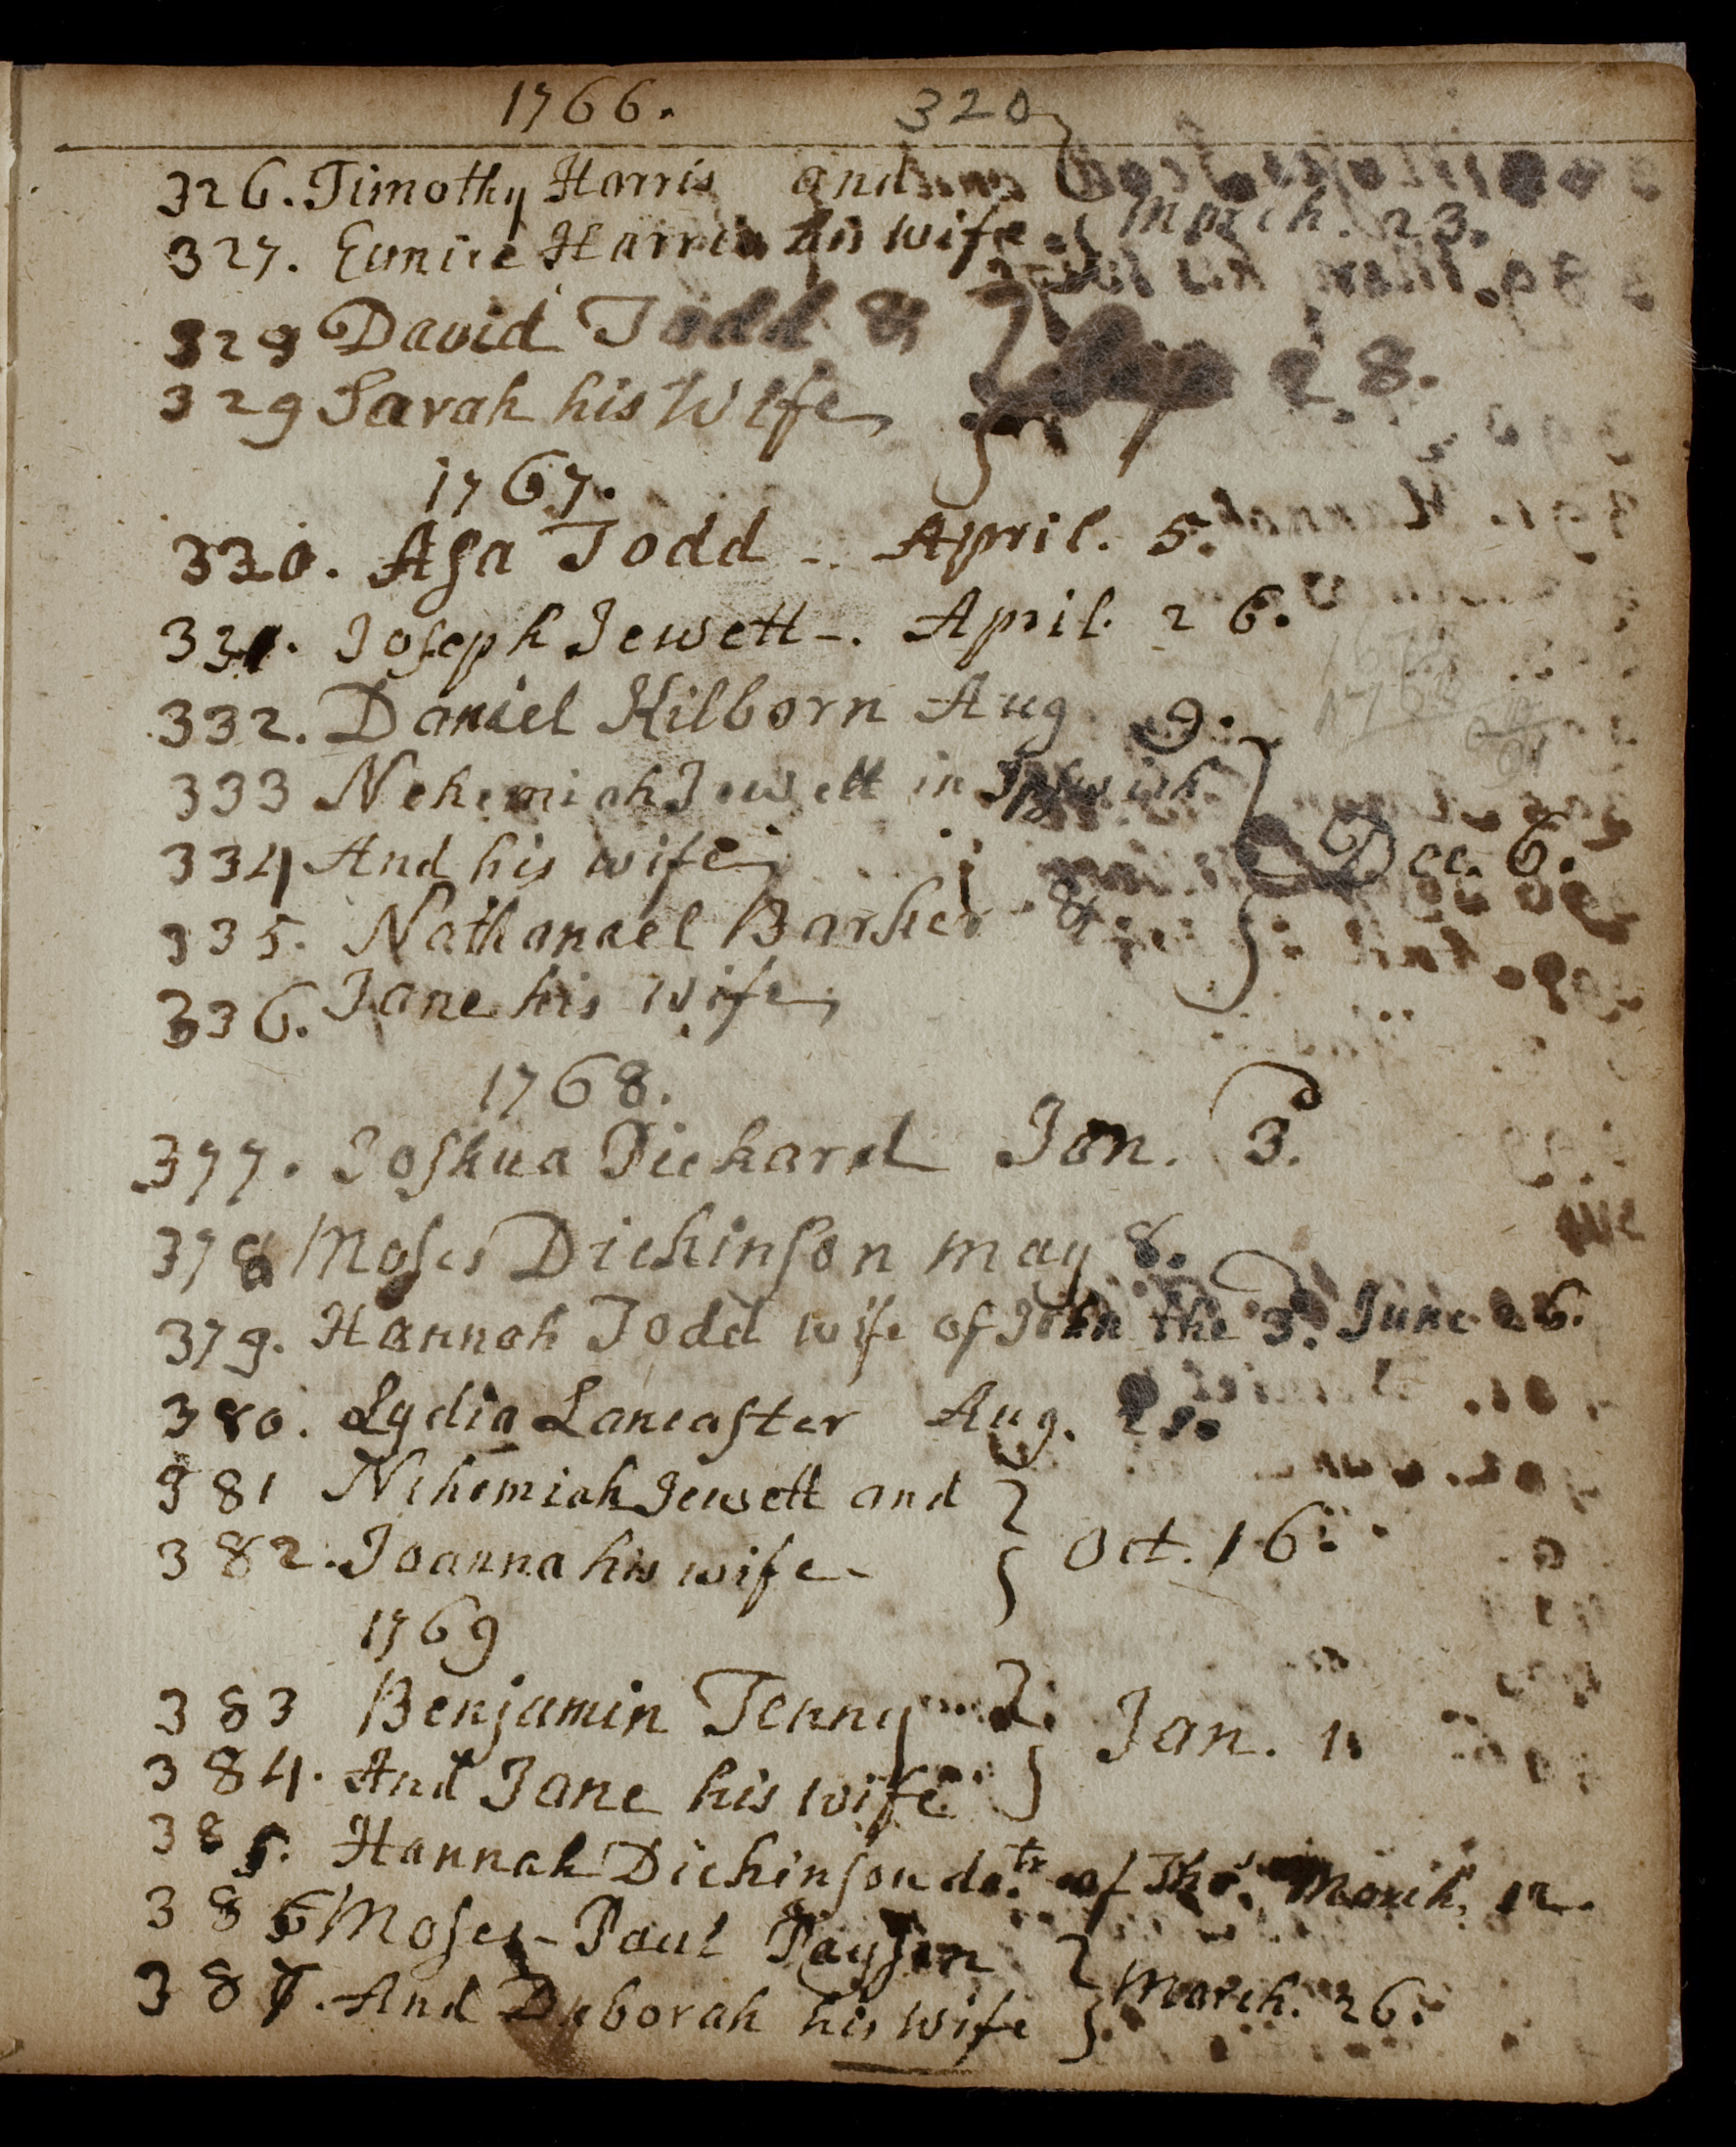 1766. 320
326. Timothy Harris and
327. Eunice Harris his wife. March. 23.
329 David Todd &
329 Sarah his Wife, Sep 28.
1767.
330. Asa Todd -. April. 5.
331. Joseph Jewett -. April. 26.
332. Daniel Kilborn Aug. 9.
333 Nehemiah Jewett in Ipswich
334 And his wife; Dec. 6.
335. Nathanael Barker &
336. Jane his wife,
1768.
377. Joshua Pickard Jan. 3.
378 Moses Dickinson may 8.
379. Hannah Todd wife of John the 3d. June 26.
380. Lydia Lancaster Aug.
381 Nehemiah Jewett and
382. Joanna his wife - Oct. 16.
1769
383 Benjamin Tenny
384. And Jane his wife Jan. 1.
385. Hannah Dickinson datr. of Tho's. March. 12.
386 Moses-Paul Payson
387. And Deborah his wife March. 26.